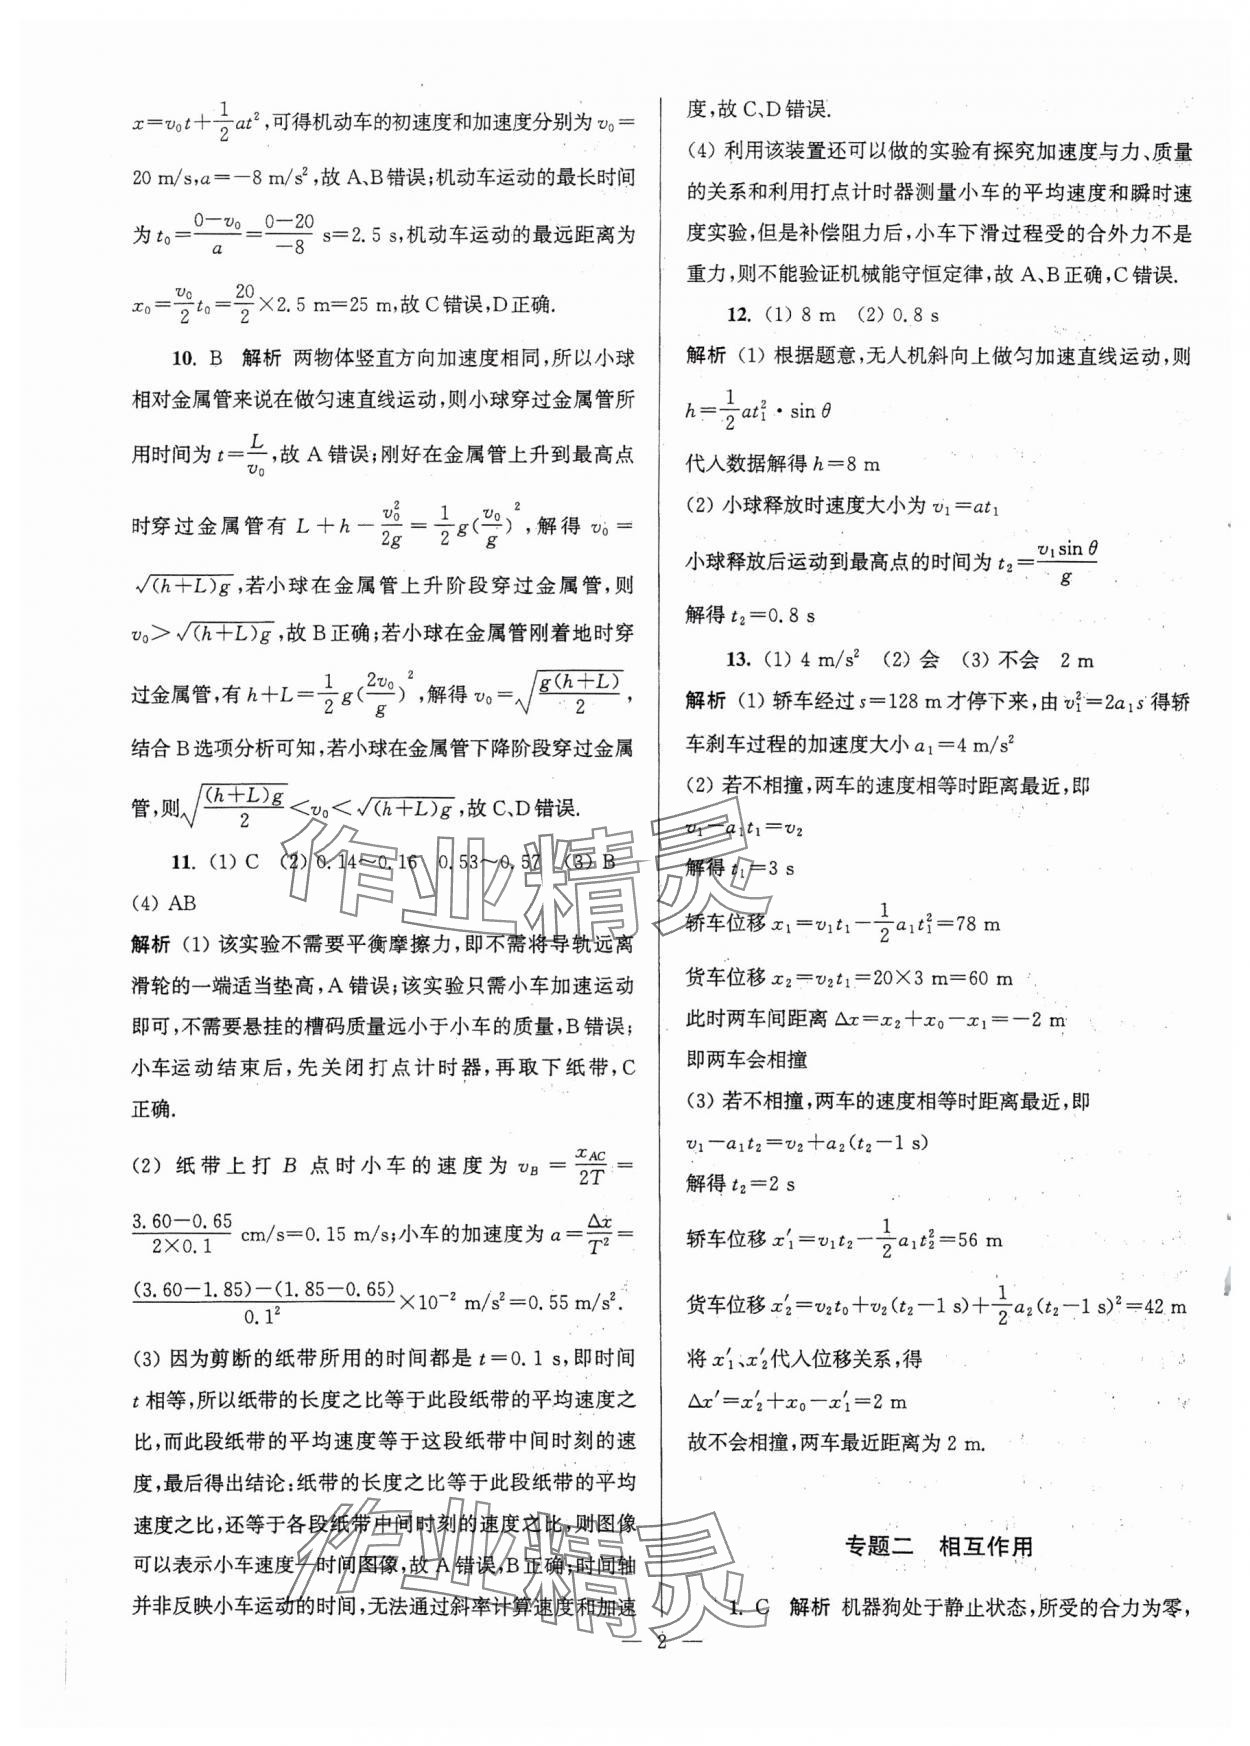 x=v₀t+1/2at²,可得机动车的初速度和加速度分别为 v₀=
20 m/s,a=-8 m/s²,故 A、B 错误;机动车运动的最长时间
为 t₀=(0-v₀)/a=(0-20)/(-8) s=2.5 s,机动车运动的最远距离为
x₀=v₀/2 t₀=20/2×2.5 m=25 m,故 C 错误,D 正确.
10. B 解析 两物体竖直方向加速度相同,所以小球
相对金属管来说在做匀速直线运动,则小球穿过金属管所
用时间为 t=L/v₀,故 A 错误;刚好在金属管上升到最高点
时穿过金属管有 L+h-v₀²/2g=1/2g(v₀/g)²,解得 v₀=
√((h+L)g),若小球在金属管上升阶段穿过金属管,则
v₀>√((h+L)g),故 B 正确;若小球在金属管刚着地时穿
过金属管,有 h+L=1/2g(2v₀/g)²,解得 v₀=√(g(h+L)/2),
结合 B 选项分析可知,若小球在金属管下降阶段穿过金属
管,则√((h+L)g/2)<v₀<√((h+L)g),故 C、D 错误.
11. (1) C (2) 0.14~0.16 0.53~0.57 (3) B
(4) AB
解析 (1) 该实验不需要平衡摩擦力,即不需将导轨远离
滑轮的一端适当垫高,A 错误;该实验只需小车加速运动
即可,不需要悬挂的槽码质量远小于小车的质量,B 错误;
小车运动结束后,先关闭打点计时器,再取下纸带,C
正确.
(2) 纸带上打 B 点时小车的速度为 v_B=x_AC/2T=
(3.60-0.65)/(2×0.1) cm/s=0.15 m/s;小车的加速度为 a=Δx/T²=
((3.60-1.85)-(1.85-0.65))/0.1²×10⁻² m/s²=0.55 m/s².
(3) 因为剪断的纸带所用的时间都是 t=0.1 s,即时间
t 相等,所以纸带的长度之比等于此段纸带的平均速度之
比,而此段纸带的平均速度等于这段纸带中间时刻的速
度,最后得出结论:纸带的长度之比等于此段纸带的平均
速度之比,还等于各段纸带中间时刻的速度之比,则图像
可以表示小车速度—时间图像,故 A 错误,B 正确;时间轴
并非反映小车运动的时间,无法通过斜率计算速度和加速
度,故 C、D 错误.
(4) 利用该装置还可以做的实验有探究加速度与力、质量
的关系和利用打点计时器测量小车的平均速度和瞬时速
度实验,但是补偿阻力后,小车下滑过程受的合外力不是
重力,则不能验证机械能守恒定律,故 A、B 正确,C 错误.
12. (1) 8 m (2) 0.8 s
解析 (1) 根据题意,无人机斜向上做匀加速直线运动,则
h=1/2at₁²·sin θ
代入数据解得 h=8 m
(2) 小球释放时速度大小为 v₁=at₁
小球释放后运动到最高点的时间为 t₂=v₁sin θ/g
解得 t₂=0.8 s
13. (1) 4 m/s² (2) 会 (3) 不会 2 m
解析 (1) 轿车经过 s=128 m 才停下来,由 v₁²=2a₁s 得轿
车刹车过程的加速度大小 a₁=4 m/s²
(2) 若不相撞,两车的速度相等时距离最近,即
v₁-a₁t₁=v₂
解得 t₁=3 s
轿车位移 x₁=v₁t₁-1/2a₁t₁²=78 m
货车位移 x₂=v₂t₁=20×3 m=60 m
此时两车间距离 Δx=x₂+x₀-x₁=-2 m
即两车会相撞
(3) 若不相撞,两车的速度相等时距离最近,即
v₁-a₁t₂=v₂+a₂(t₂-1 s)
解得 t₂=2 s
轿车位移 x₁′=v₁t₂-1/2a₁t₂²=56 m
货车位移 x₂′=v₂t₀+v₂(t₂-1 s)+1/2a₂(t₂-1 s)²=42 m
将 x₁′、x₂′代入位移关系,得
Δx′=x₂′+x₀-x₁′=2 m
故不会相撞,两车最近距离为 2 m.
专题二 相互作用
1. C 解析 机器狗处于静止状态,所受的合力为零,
— 2 —
作业精灵
作业精灵